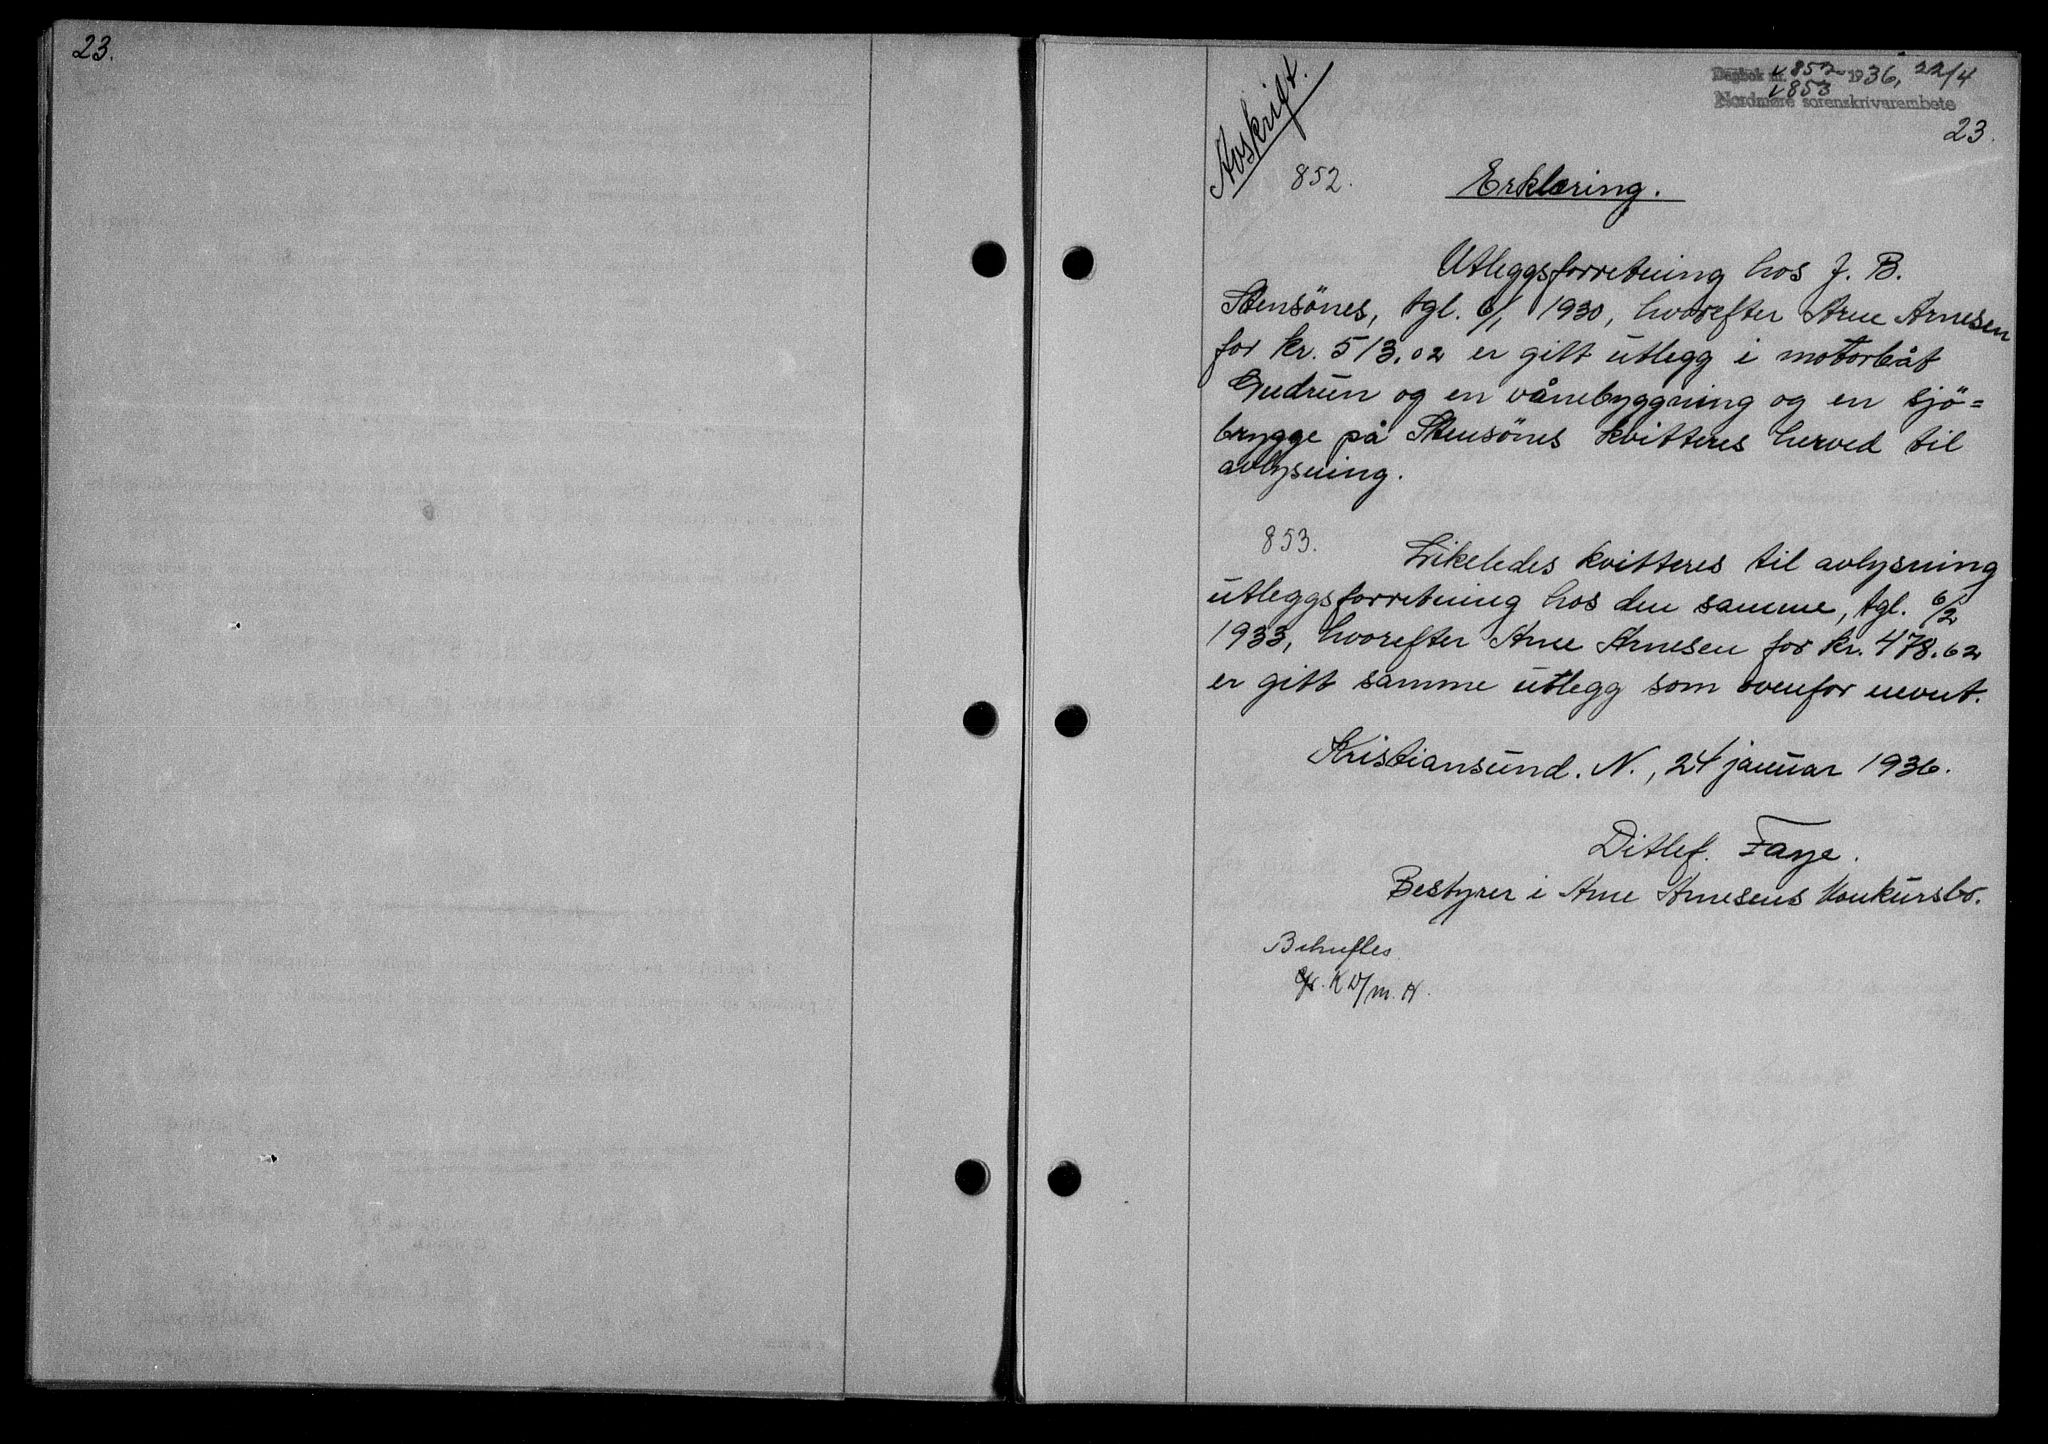 23.
Dagbok nr. 852 1936, 22/4
853
Nordmøre sorenskrivarembete
23.
Avskrift.
852.
Erklæring.
Utleggsforretning hos J. B.
Stensönes, tgl. 6/1 1930, hvorefter Arne Arnesen
for kr. 513.02 er gitt utlegg i motorbåt
Gudrun og en vånebyggning og en sjö=
brygge på Stensönes kvitteres herved til
avlysning.
853.
Likeledes kvitteres til avlysning
utleggsforretning hos den samme, tgl. 6/2
1933, hvorefter Arne Arnesen for kr. 478.62
er gitt samme utlegg som ovenfor nevnt.
Kristiansund. N., 24 januar 1936.
Ditlef. Faye.
Bestyrer i Arne Arnesens Konkursbo.